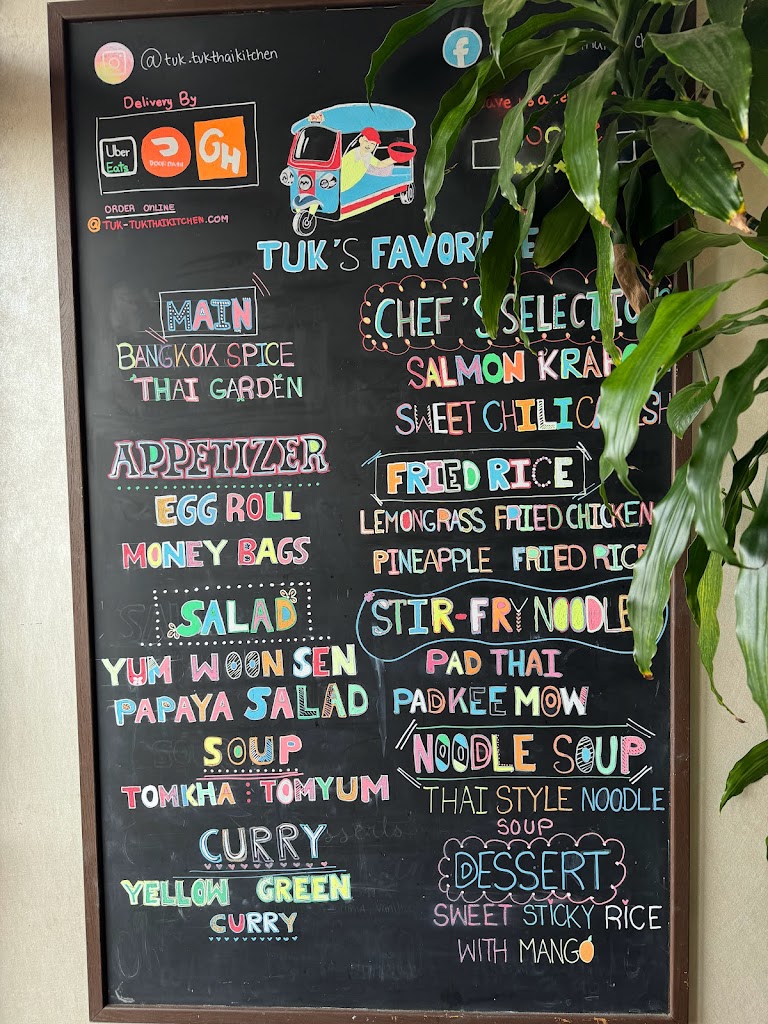 @tuk.tukthaikitchen
Delivery By
Uber
Eats
DOORDASH
GH
ORDER ONLINE
@TUK-TUKTHAIKITCHEN.COM
TUK'S FAVORITE
MAIN
BANGKOK SPICE
THAI GARDEN
APPETIZER
EGG ROLL
MONEY BAGS
SALAD
YUM WOON SEN
PAPAYA SALAD
SOUP
TOMKHA : TOMYUM
CURRY
YELLOW GREEN
CURRY
CHEF'S SELECTION
SALMON
SWEET CHILI
FRIED RICE
LEMONGRASS FRIED CHICKEN
PINEAPPLE FRIED RICE
STIR-FRY NOODLE
PAD THAI
PADKEE MOW
NOODLE SOUP
THAI STYLE NOODLE
SOUP
DESSERT
SWEET STICKY RICE
WITH MANGO